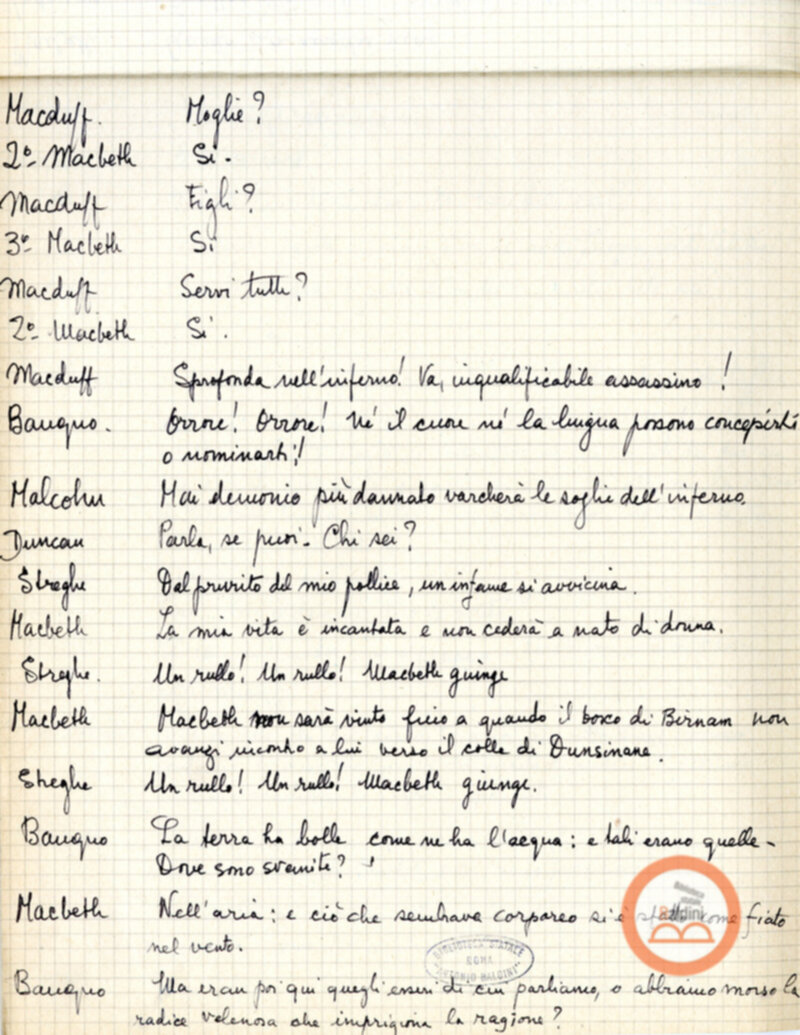 Macduff. Moglie?
2º Macbeth Si.
Macduff Figli?
3º Macbeth Si
Macduff Servi tutti?
2º Macbeth Si.
Macduff Sprofonda nell'inferno! Va, inqualificabile assassino!
Banquo. Orrore! Orrore! Né il cuore né la lingua possono concepirti
o nominarti!
Malcolm Mai demonio più dannato varcherà le soglie dell'inferno.
Duncan Parla, se puoi. Chi sei?
Streghe Dal prurito del mio pollice, un infame si avvicina.
Macbeth La mia vita è incantata e non cederà a nato di donna.
Streghe. Un rullo! Un rullo! Macbeth giunge
Macbeth Macbeth non sarà vinto fino a quando il bosco di Birnam non
avanzi incontro a lui verso il colle di Dunsinane.
Streghe Un rullo! Un rullo! Macbeth giunge.
Banquo La terra ha bolle come ne ha l'acqua: e tali erano quelle -
Dove sono svanite?
Macbeth Nell'aria: e ciò che sembrava corporeo si è stato come fiato
nel vento.
Banquo Ma eran poi qui quegli esseri di cui parliamo, o abbiamo morso la
radice velenosa che imprigiona la ragione?
BIBLIOTECA STATALE
ROMA
ANTONIO BALDINI
Biblioteca
Baldini